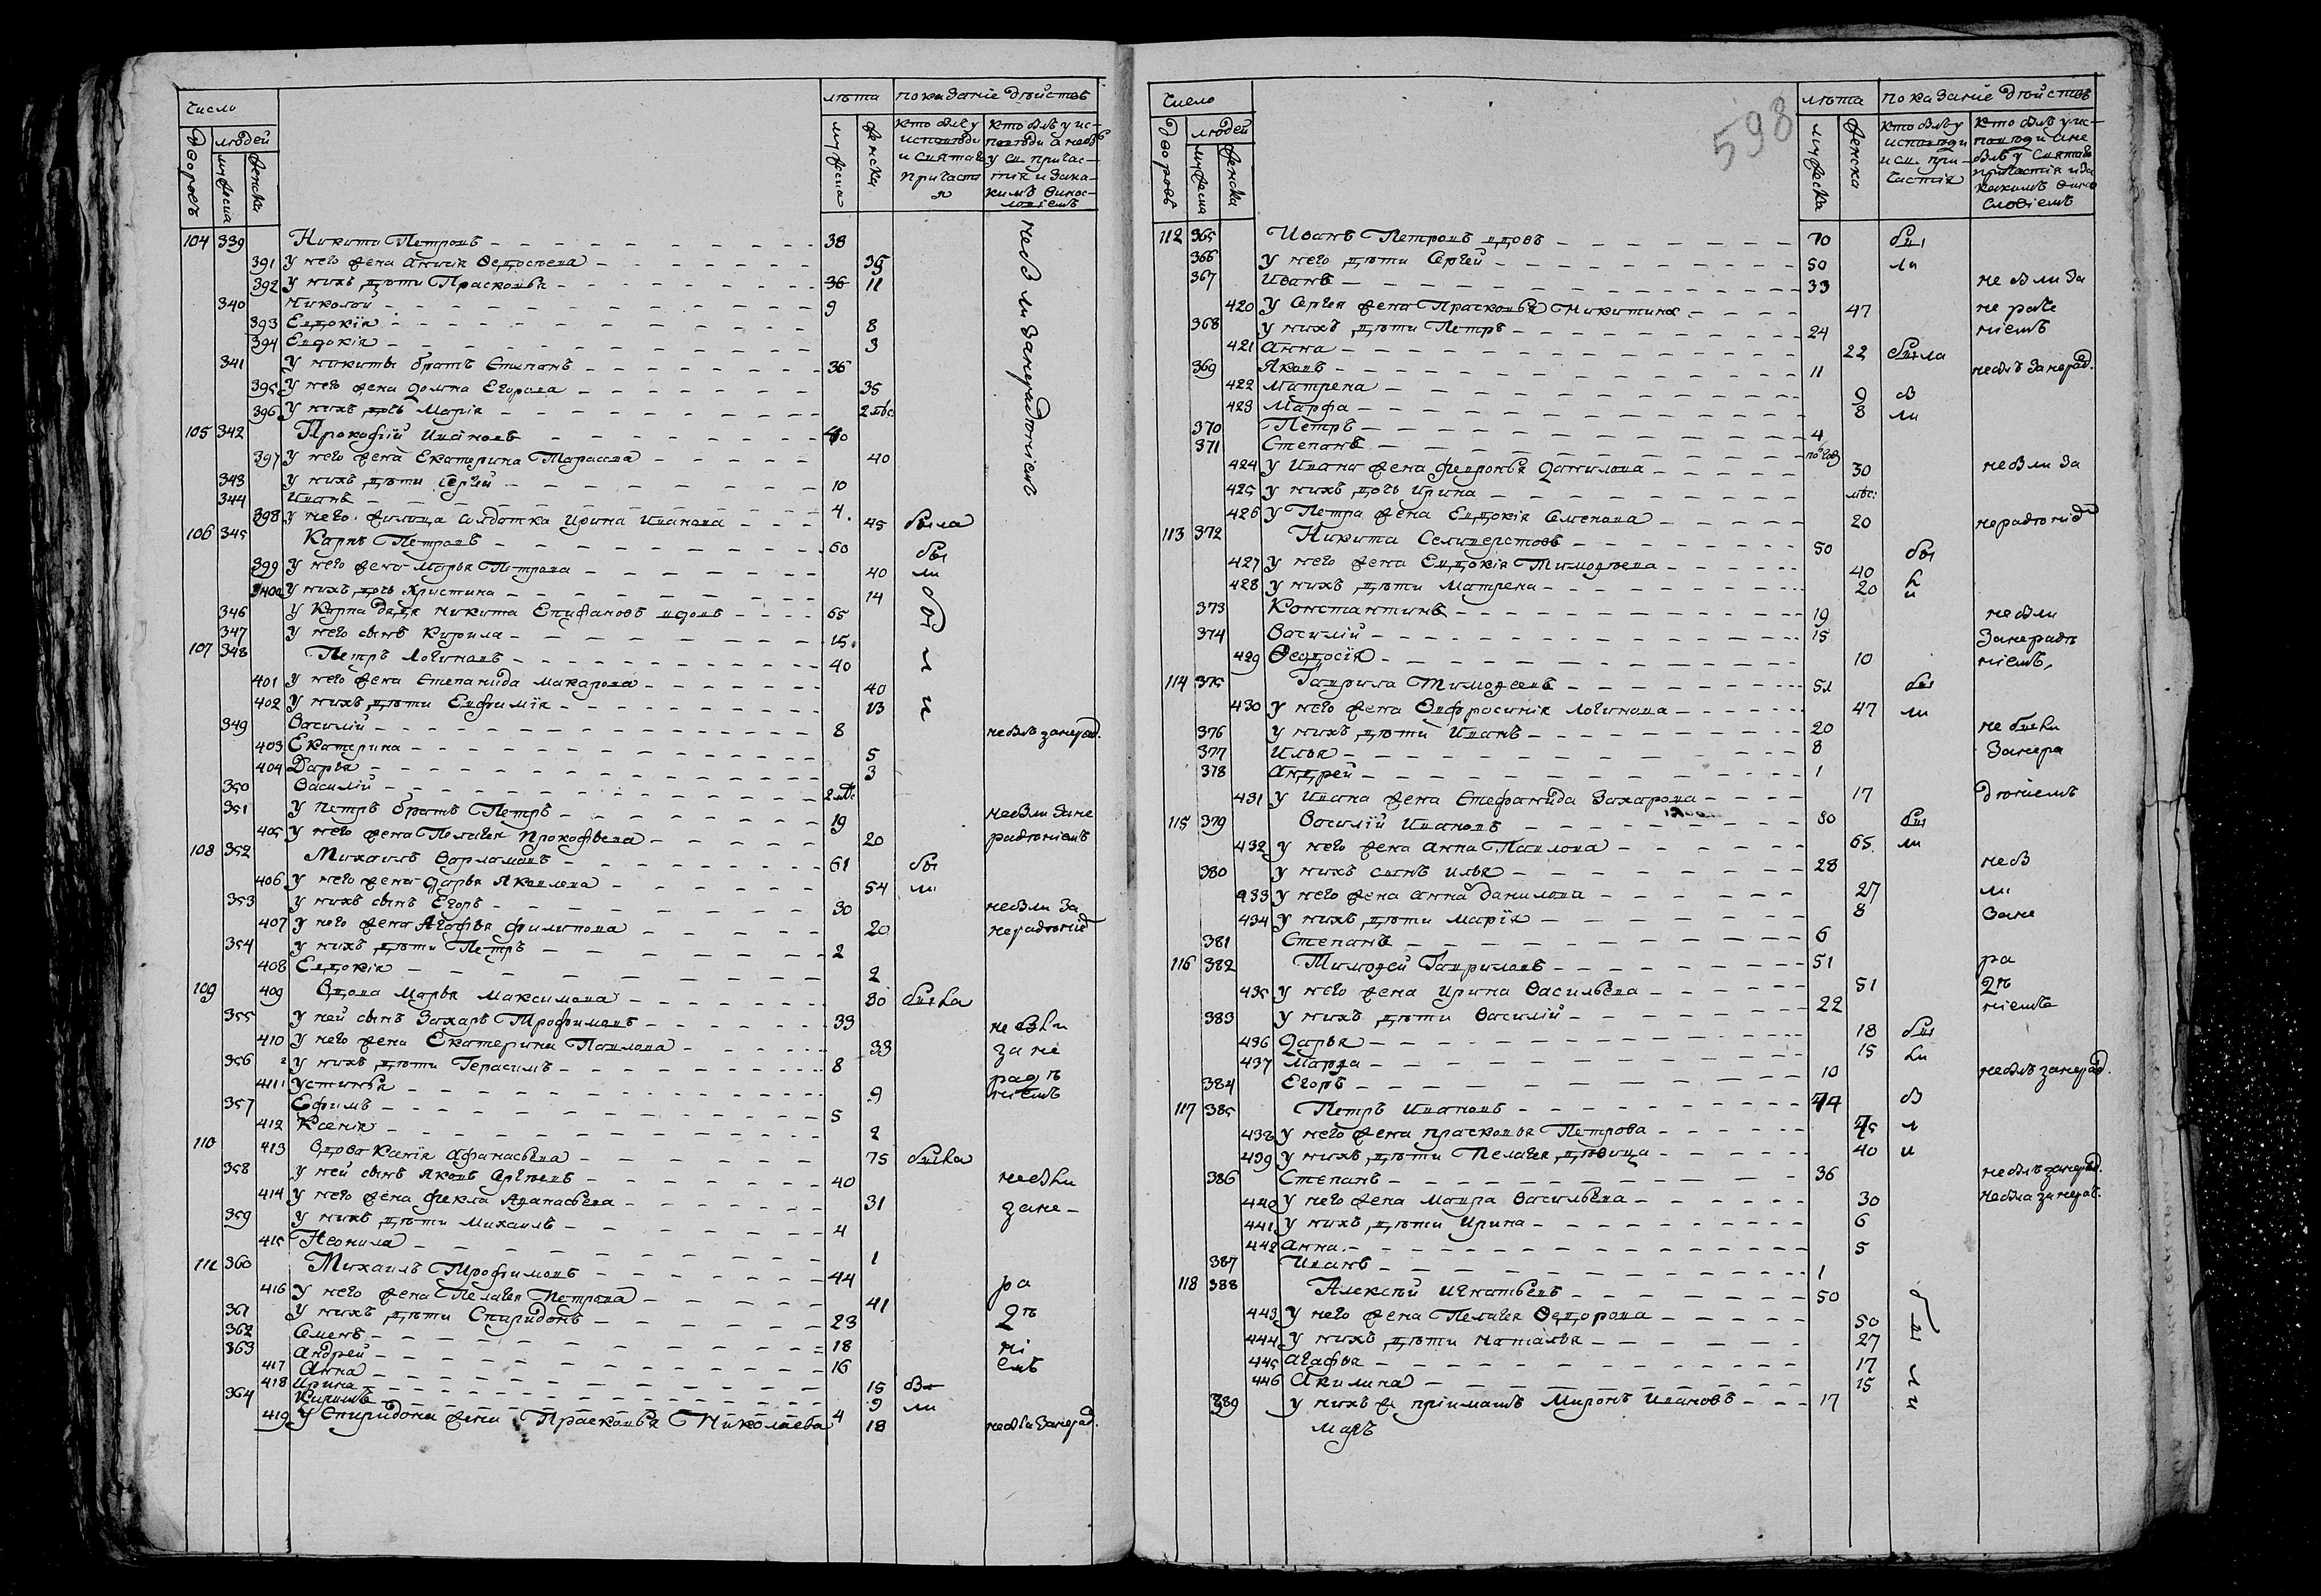 число
лѣта показаніе дѣйствъ
дворовъ людей мужеска женска
мужеска женска
кто былъ у исповѣди и святаго причастія
кто былъ у исповѣди а небылъ у св. причастія и за какимъ винословіемъ
небыли за нерадѣніемъ
104 339 Никита Петровъ 38
391 У него жена Анисія Федосѣева 35
392 У нихъ дѣти Прасковья 36 11
340 Николай 9
393 Евдокія 8
394 Евдокія 3
341 У никиты братъ Степанъ 36
395 У него жена Домна Егорова 35
396 У нихъ дочь Марія 2 мѣс
105 342 Прокофій Ивановъ 40
397 У него жена Екатерина Тарасова 40
343 У нихъ дѣти Сергей 10
344 Иванъ 4
398 У него жилица солдатка Ирина Иванова 45 была
106 345 Карпъ Петровъ 60 бы
399 У него жена Марья Петрова 40 ли
400 У нихъ дочь Христина 14
346 У Карпа дядя никита Епифановъ вдовъ 65 бы
347 У него сынъ Кирила 15
107 348 Петръ Логиновъ 40 л
401 У него жена Степанида Макарова 40
402 У нихъ дѣти Евфимія 13 и
349 Василій 8 небылъ занерад.
403 Екатерина 5
404 Дарья 3
350 Василій 2 мѣс
351 У Петра братъ Петръ 19 небыли зане
405 У него жена Пелагея Прокофьева 20 радѣніемъ
108 352 Михаилъ Варламовъ 61 бы
406 У него жена Дарья Яковлева 54 ли
353 У нихъ сынъ Егоръ 30 небыли за
407 У него жена Агафья Филипова 20 нерадѣніе
354 У нихъ дѣти Петръ 2
408 Евдокія 2
109 409 Вдова Марья Максимова 80 была
355 У ней сынъ Захаръ Трофимовъ 33 не были
410 У него жена Екатерина Павлова 33 за не
356 У нихъ дѣти Герасимъ 8 радѣ
411 Устинья 9 ніемъ
357 Ефимъ 5
412 Ксенія 2
110 413 Вдова Ксенія Афанасьева 75 была
358 У ней сынъ Яковъ Сергѣевъ 40 небыли
414 У него жена Фекла Афанасьева 31 зане-
359 У нихъ дѣти Михаилъ 4
415 Неонила 1
111 360 Михаилъ Трофимовъ 44 ра
416 У него жена Пелагея Петрова 41
361 У нихъ дѣти Спиридонъ 23 дѣ
362 Семенъ 18 ні
363 Андрей 16 емъ
417 Анна 15 бы
418 Ирина 9 ли
364 4
419 У Спиридона жена Прасковья Николаева 18 небыла занерад.
598
число
лѣта показаніе дѣйствъ
дворовъ людей мужеска женска
мужеска женска
кто былъ у исповѣди и св. причастія
кто былъ у исповѣди а не былъ у святаго причастія и за какимъ винословіемъ
112 365 Иванъ Петровъ вдовъ 70 бы
366 У него дѣти Сергей 50 ли
367 Иванъ 33 не были за
420 У Сергея жена Прасковья Никитина 47 не радѣ
368 У нихъ дѣти Петръ 24 ніемъ
421 Анна 22 была
369 Яковъ 11 небылъ занерад.
422 Матрена 9 бы
423 Марфа 8 ли
370 Петръ 4
371 Степанъ полгод
424 У Ивана жена Февронья Данилова 30 небыли за
425 У нихъ дочь Ирина мѣс:
426 У Петра жена Евдокія Семенова 20 нерадѣніе
113 372 Никита Селиверстовъ 50 бы
427 У него жена Евдокія Тимофеева 40 л
428 У нихъ дѣти Матрена 20 и
373 Константинъ 19 небыли
374 Василій 15 Занерадѣ
429 Феодосія 10 ніемъ.
114 375 Гаврила Тимофеевъ 51 бы
430 У него жена Евфросинія Логинова 47 ли
376 У нихъ дѣти Иванъ 20 не были
377 Илья 8 Занера
378 Андрей 1
431 У Ивана жена Стефанида Захарова 17 дѣніемъ
115 379 Василій Ивановъ 80 бы
432 У него жена Анна Павлова 65 ли
380 У нихъ сынъ Илья 28 небы
433 У него жена Анна Данилова 27 ли
434 У нихъ дѣти Марія 8 Зане
381 Степанъ 6
116 382 Тимофей Гавриловъ 51 ра
435 У него жена Ирина Васильева 51 дѣ
383 У нихъ дѣти Василій 22 ніемъ
436 Дарья 18 бы
437 Марфа 15 ли
384 Егоръ 10 небылъ занерад.
117 385 Петръ Ивановъ 74 бы
438 У него жена Прасковья Петрова 75 л
439 У нихъ дѣти Пелагея дѣвица 40 и
386 Степанъ 36 небылъ занерад.
440 У него жена Мавра Васильева 30 небыла занерад.
441 У нихъ дѣти Ирина 6
442 Анна 5
387 Иванъ 1
118 388 Алексѣй Игнатьевъ 50
443 У него жена Пелагея Федорова 50 бы
444 У нихъ дѣти Наталья 27
445 Агафья 17 л
446 Акилина 15
389 У нихъ пріимашъ Миронъ Ивановъ 17 и